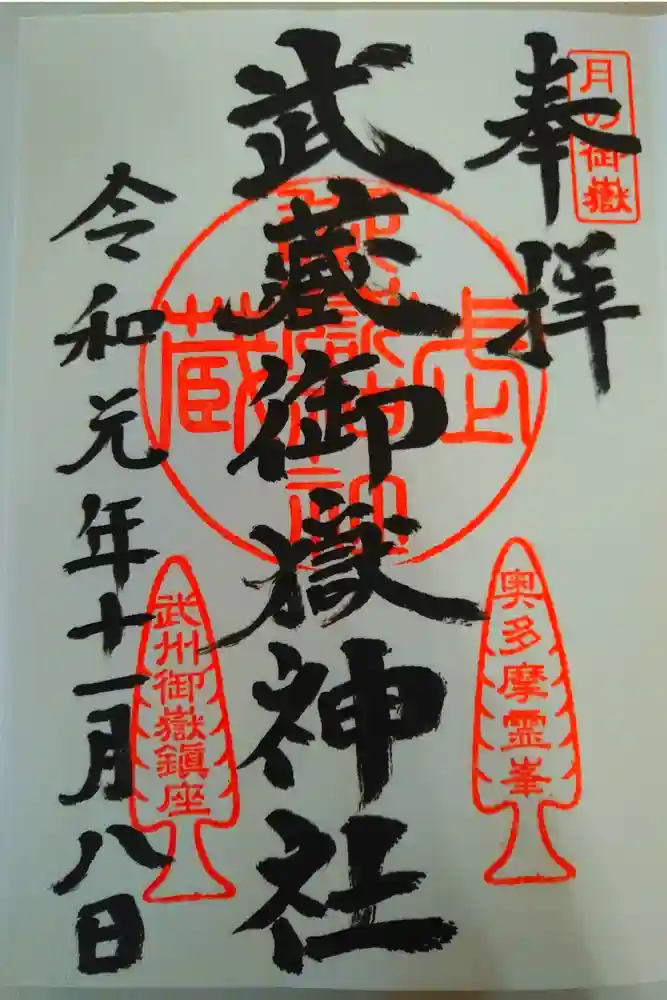 月の御嶽
奉拝
奥多摩霊峯
武蔵御嶽神社
武州御嶽鎮座
令和元年十一月八日